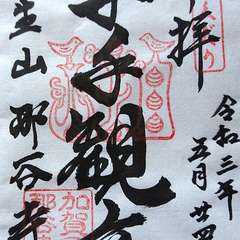 拝
令和三年
五月廿四
千手觀音
生山 那谷寺
加賀
那谷